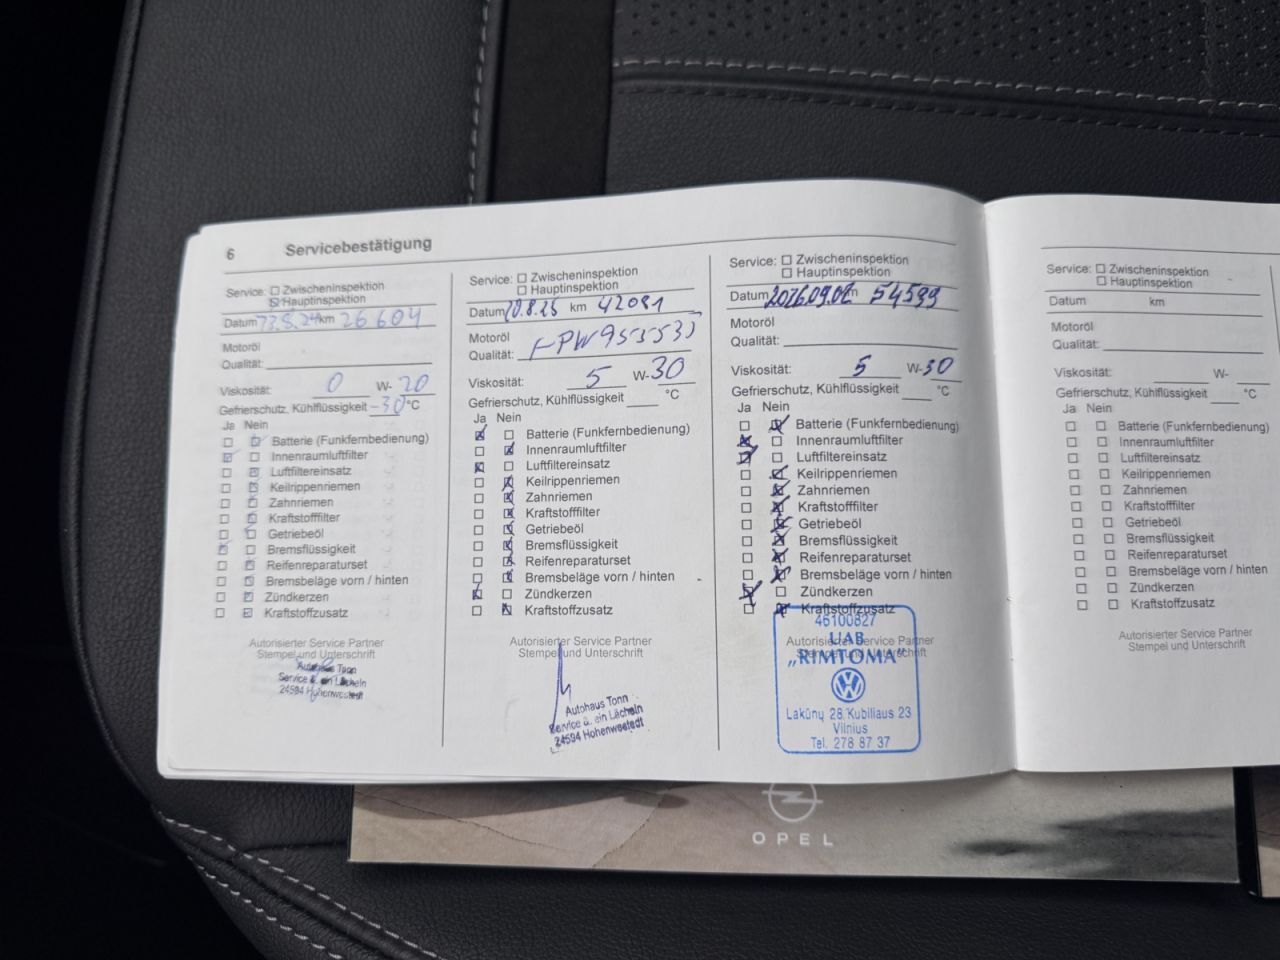 6 Servicebestätigung
Service: Zwischeninspektion
Hauptinspektion
Datum 13.8.24 km 26604
Motoröl
Qualität:
Viskosität: 0 W-20
Gefrierschutz, Kühlflüssigkeit -30 °C
Ja Nein
Batterie (Funkfernbedienung)
Innenraumluftfilter
Luftfiltereinsatz
Keilrippenriemen
Zahnriemen
Kraftstofffilter
Getriebeöl
Bremsflüssigkeit
Reifenreparaturset
Bremsbeläge vorn / hinten
Zündkerzen
Kraftstoffzusatz
Autorisierter Service Partner
Stempel und Unterschrift
Autohaus Tonn
Service u. ein Lächeln
24594 Hohenwestedt
Service: Zwischeninspektion
Hauptinspektion
Datum 20.8.25 km 42091
Motoröl
Qualität:
Viskosität: 5 W-30
Gefrierschutz, Kühlflüssigkeit °C
Ja Nein
Batterie (Funkfernbedienung)
Innenraumluftfilter
Luftfiltereinsatz
Keilrippenriemen
Zahnriemen
Kraftstofffilter
Getriebeöl
Bremsflüssigkeit
Reifenreparaturset
Bremsbeläge vorn / hinten
Zündkerzen
Kraftstoffzusatz
Autorisierter Service Partner
Stempel und Unterschrift
Autohaus Tonn
Service u. ein Lächeln
24594 Hohenwestedt
Service: Zwischeninspektion
Hauptinspektion
Datum km 54599
Motoröl
Qualität:
Viskosität: 5 W-30
Gefrierschutz, Kühlflüssigkeit °C
Ja Nein
Batterie (Funkfernbedienung)
Innenraumluftfilter
Luftfiltereinsatz
Keilrippenriemen
Zahnriemen
Kraftstofffilter
Getriebeöl
Bremsflüssigkeit
Reifenreparaturset
Bremsbeläge vorn / hinten
Zündkerzen
Kraftstoffzusatz
Autorisierter Service Partner
Stempel und Unterschrift
46100827
UAB
„RIMTOMA“
Lakūnų 28, Kubiliaus 23
Vilnius
Tel. 278 87 37
Service: Zwischeninspektion
Hauptinspektion
Datum km
Motoröl
Qualität:
Viskosität: W-
Gefrierschutz, Kühlflüssigkeit °C
Ja Nein
Batterie (Funkfernbedienung)
Innenraumluftfilter
Luftfiltereinsatz
Keilrippenriemen
Zahnriemen
Kraftstofffilter
Getriebeöl
Bremsflüssigkeit
Reifenreparaturset
Bremsbeläge vorn / hinten
Zündkerzen
Kraftstoffzusatz
Autorisierter Service Partner
Stempel und Unterschrift
OPEL